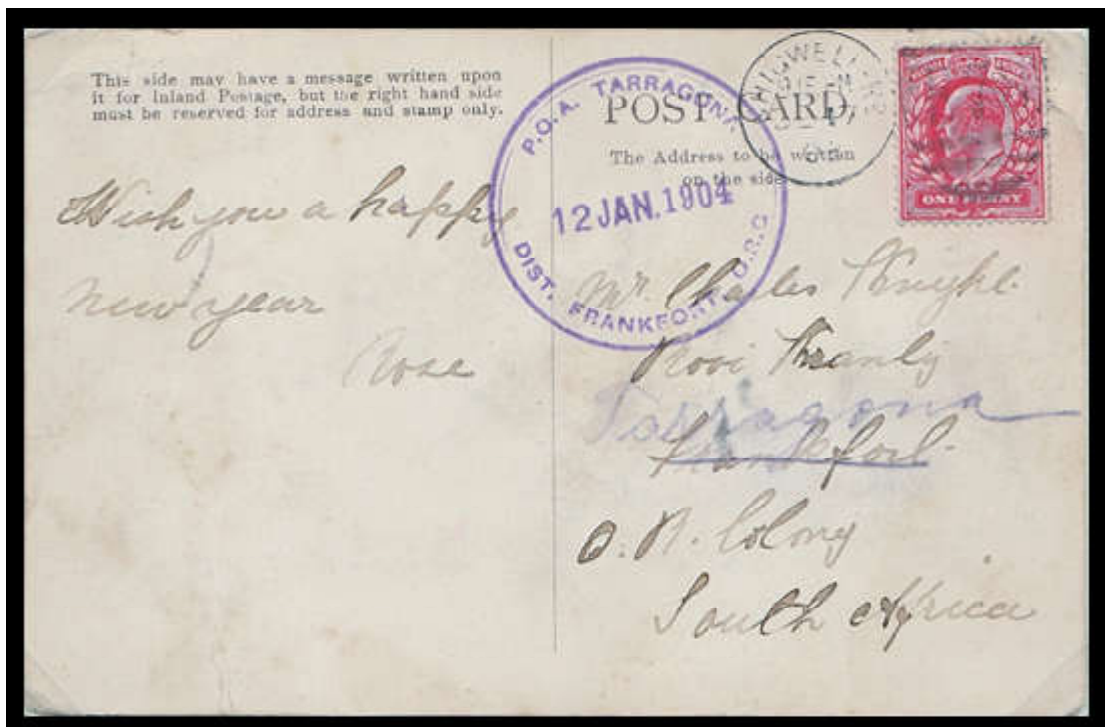 This side may have a message written upon
it for Inland Postage, but the right hand side
must be reserved for address and stamp only.
POST CARD.
The Address to be written
on the side
P.O.A. TARRAGONA
12 JAN. 1904
DIST. FRANKFORT, O.R.C
ONE PENNY
Wish you a happy
new year
Rose
Mr. Charles Knight
Rooi Kranly
Tarragona
Frankfort
O. R. Colony
South Africa